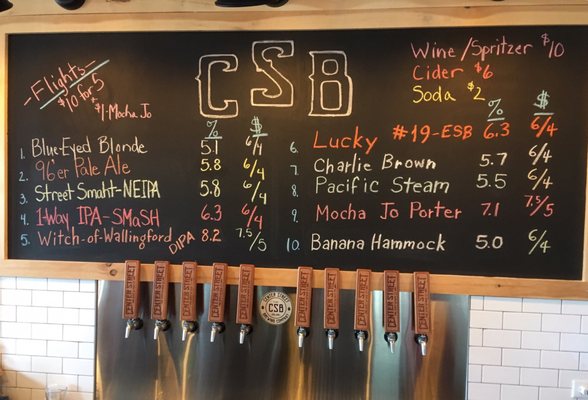 Flights
$10 for 5
*$1-Mocha Jo
CSB
Wine/Spritzer $10
Cider $6
Soda $2
% $
1. Blue-Eyed Blonde 5.1 6/4
2. 96'er Pale Ale 5.8 6/4
3. Street Smaht-NEIPA 5.8 6/4
4. 1-Way IPA-SMaSH 6.3 6/4
5. Witch-of-Wallingford DIPA 8.2 7.5/5
% $
6. Lucky #19-ESB 6.3 6/4
7. Charlie Brown 5.7 6/4
8. Pacific Steam 5.5 6/4
9. Mocha Jo Porter 7.1 7.5/5
10. Banana Hammock 5.0 6/4
CENTER STREET
CENTER STREET
CENTER STREET
CENTER STREET
CENTER STREET
CSB
CENTER STREET
CENTER STREET
CENTER STREET
CENTER STREET
CENTER STREET